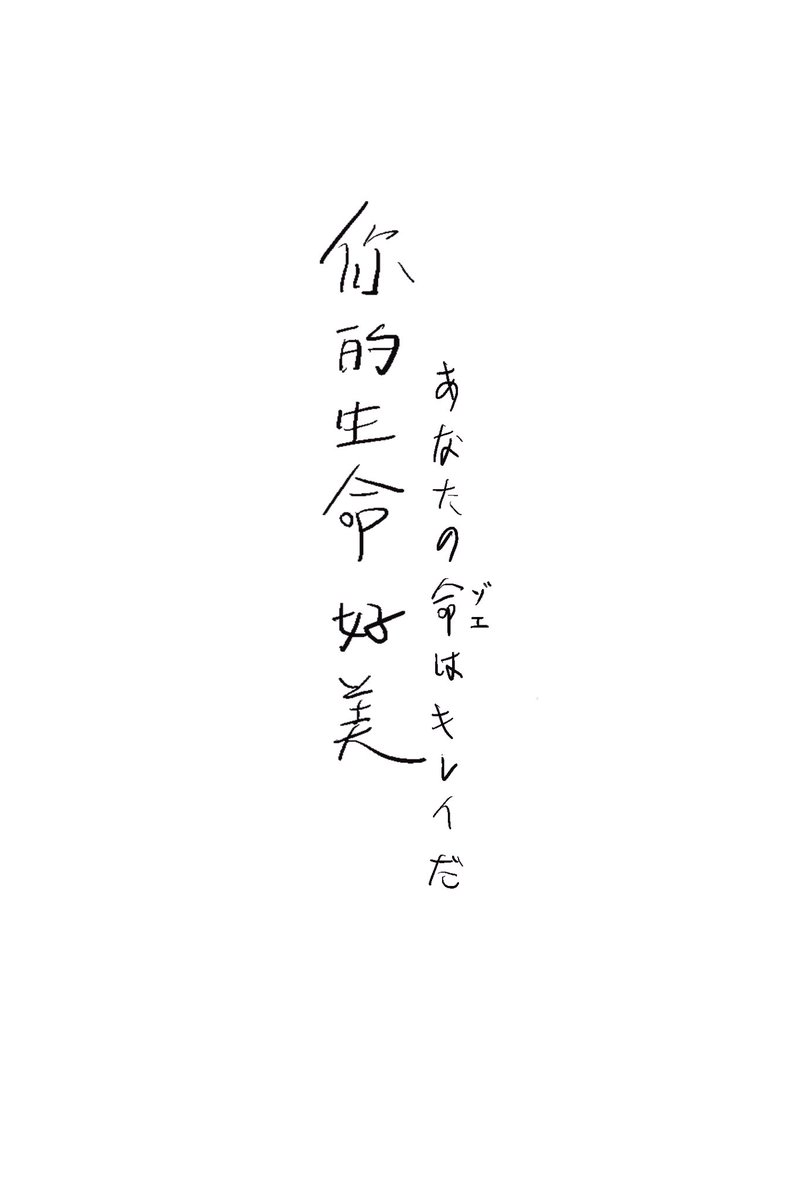 あなたの命はキレイだ
ゾエ
你的生命好美